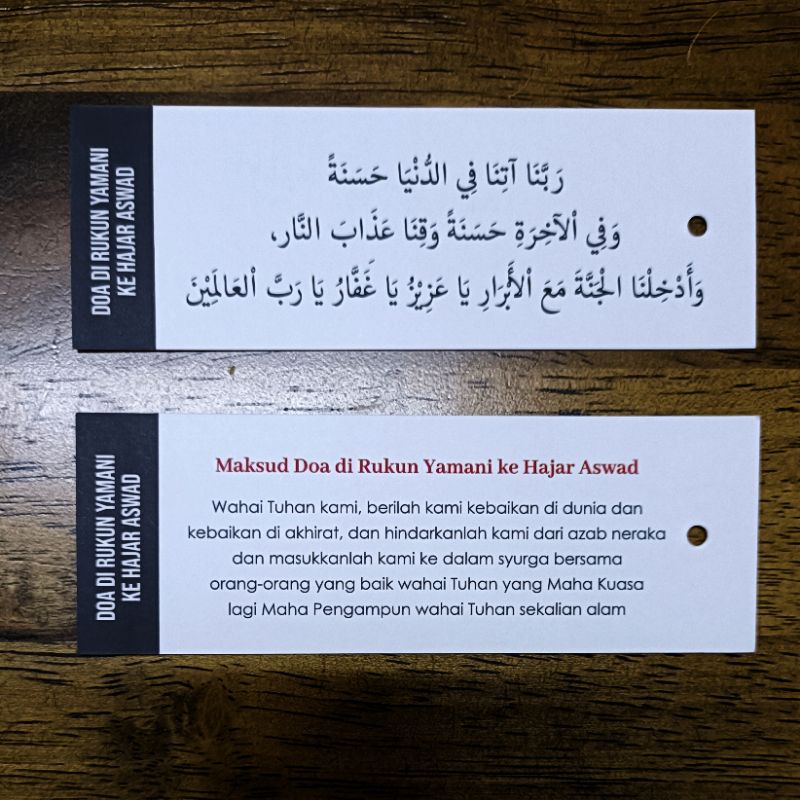 DOA DI RUKUN YAMANI
KE HAJAR ASWAD
رَبَّنَا آتِنَا فِي الدُّنْيَا حَسَنَةً
وَفِي اْلآخِرَةِ حَسَنَةً وَقِنَا عَذَابَ النَّارِ،
وَأَدْخِلْنَا الْجَنَّةَ مَعَ اْلأَبْرَارِ يَا عَزِيْزُ يَا غَفَّارُ يَا رَبَّ اْلعَالَمِيْنَ
DOA DI RUKUN YAMANI
KE HAJAR ASWAD
Maksud Doa di Rukun Yamani ke Hajar Aswad
Wahai Tuhan kami, berilah kami kebaikan di dunia dan
kebaikan di akhirat, dan hindarkanlah kami dari azab neraka
dan masukkanlah kami ke dalam syurga bersama
orang-orang yang baik wahai Tuhan yang Maha Kuasa
lagi Maha Pengampun wahai Tuhan sekalian alam